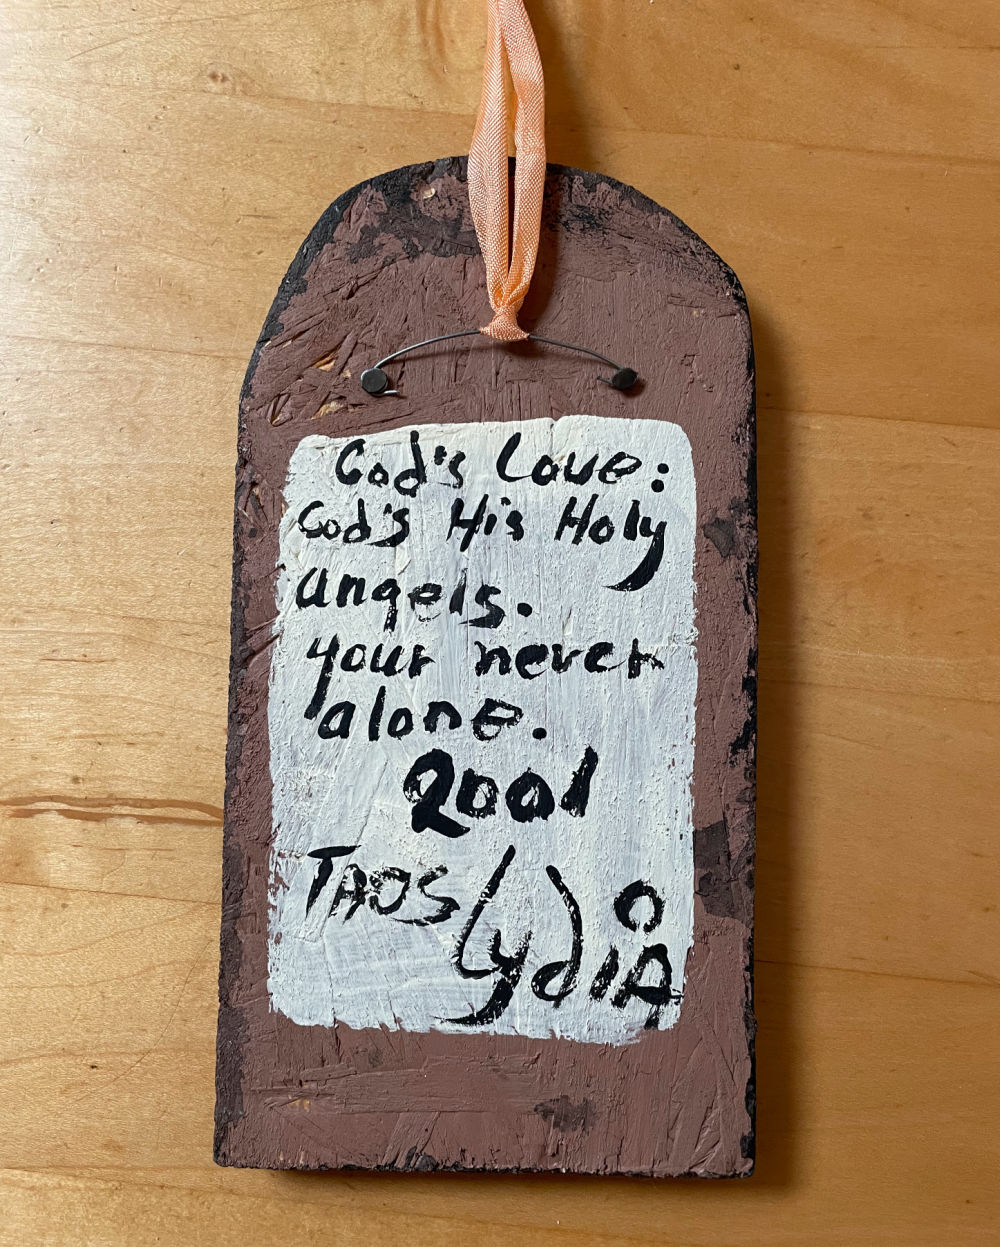 God's Love:
God's His Holy
angels.
your never
alone.
2001
TAOS LydiA